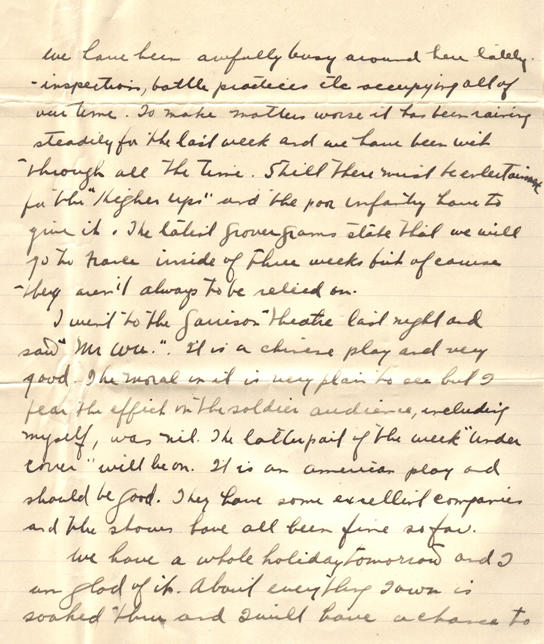 We have been awfully busy around here lately.
- inspections, battle practices etc occupying all of
our time. To make matters worse it has been raining
steadily for the last week and we have been wet
through all the time. Still there must be entertainment
for the "Higher ups" and the poor infantry have to
give it. The latest Grovergrams state that we will
go to France inside of three weeks but of course
they aren't always to be relied on.
I went to the Garrison theatre last night and
saw "Mr Wu.". It is a chinese play and very
good. The moral in it is very plain to see but I
fear the effect on the soldier audience, including
myself, was nil. The latter part of the week "Under
cover" will be on. It is an american play and
should be good. They have some excellent companies
and the shows have all been fine so far.
We have a whole holiday tomorrow and I
am glad of it. About everything I own is
soaked thru and I will have a chance to